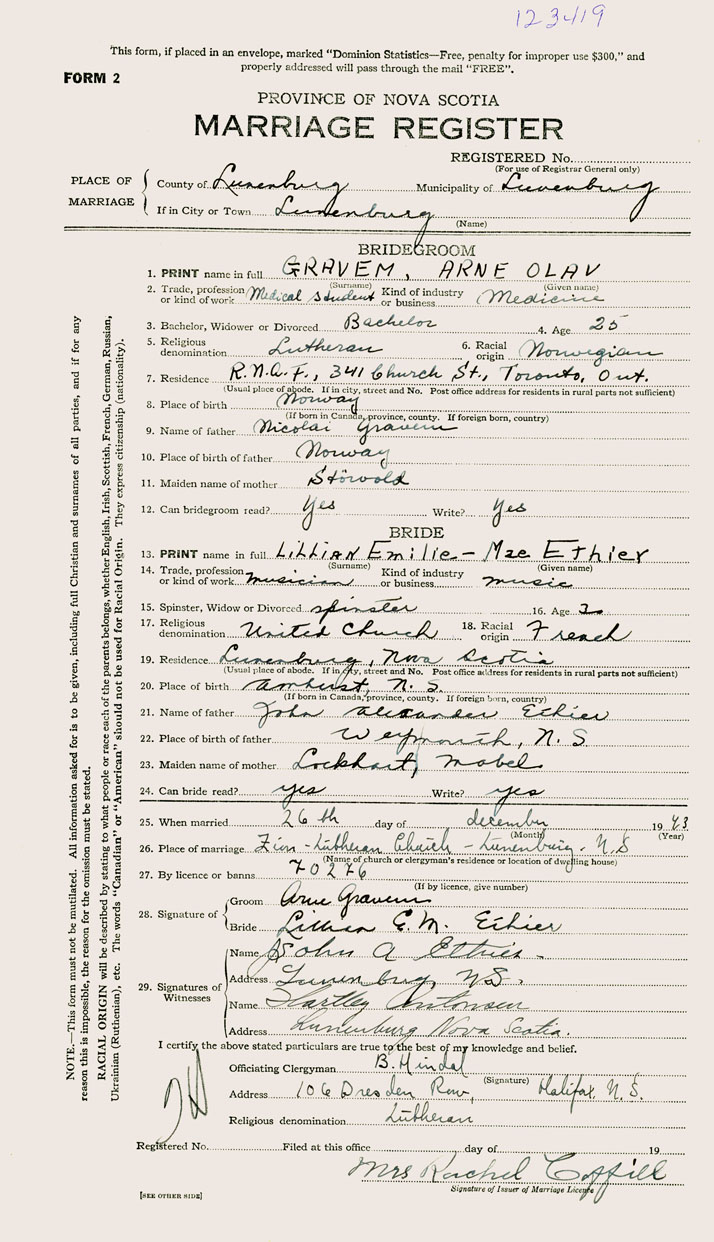 123419
This form, if placed in an envelope, marked "Dominion Statistics—Free, penalty for improper use $300," and
properly addressed will pass through the mail "FREE".
FORM 2
PROVINCE OF NOVA SCOTIA
MARRIAGE REGISTER
REGISTERED No.
(For use of Registrar General only)
PLACE OF MARRIAGE
County of Lunenburg Municipality of Lunenburg
If in City or Town Lunenburg
(Name)
BRIDEGROOM
1. PRINT name in full GRAVEM, ARNE OLAV
(Surname) (Given name)
2. Trade, profession or kind of work Medical student Kind of industry or business Medicine
3. Bachelor, Widower or Divorced Bachelor 4. Age 25
5. Religious denomination Lutheran 6. Racial origin Norwegian
7. Residence R.N.A.F., 341 Church St., Toronto, Ont.
(Usual place of abode. If in city, street and No. Post office address for residents in rural parts not sufficient)
8. Place of birth Norway
(If born in Canada, province, county. If foreign born, country)
9. Name of father Nicolai Gravem
10. Place of birth of father Norway
11. Maiden name of mother Störvold
12. Can bridegroom read? Yes Write? Yes
BRIDE
13. PRINT name in full LILLIAN Emilie - Mae Ethier
(Surname) (Given name)
14. Trade, profession or kind of work musician Kind of industry or business music
15. Spinster, Widow or Divorced spinster 16. Age
17. Religious denomination United Church 18. Racial origin French
19. Residence Lunenburg, Nova Scotia
(Usual place of abode. If in city, street and No. Post office address for residents in rural parts not sufficient)
20. Place of birth Amherst, N. S.
(If born in Canada, province, county. If foreign born, country)
21. Name of father John Alexander Ethier
22. Place of birth of father Weymouth, N. S.
23. Maiden name of mother Lockhart, Mabel
24. Can bride read? yes Write? yes
25. When married 26th day of december 1943
(Month) (Year)
26. Place of marriage Zion - Lutheran Church - Lunenburg. N.S
(Name of church or clergyman's residence or location of dwelling house)
27. By licence or banns 70276
(If by licence, give number)
28. Signature of
Groom Arne Gravem
Bride Lillian E.M. Ethier
29. Signatures of Witnesses
Name John A Ethier
Address Lunenburg, N.S.
Name Hartley Antonsen
Address Lunenburg Nova Scotia.
I certify the above stated particulars are true to the best of my knowledge and belief.
Officiating Clergyman B. Hindal
(Signature)
Address 106 Dresden Row, Halifax, N. S.
Religious denomination Lutheran
Registered No. Filed at this office day of 19
Mrs Rachel Coffill
Signature of Issuer of Marriage Licence
[SEE OTHER SIDE]
NOTE.—This form must not be mutilated. All information asked for is to be given, including full Christian and surnames of all parties, and if for any
reason this is impossible, the reason for the omission must be stated.
RACIAL ORIGIN will be described by stating to what people or race each of the parents belongs, whether English, Irish, Scottish, French, German, Russian,
Ukrainian (Ruthenian), etc. The words "Canadian" or "American" should not be used for Racial Origin. They express citizenship (nationality).